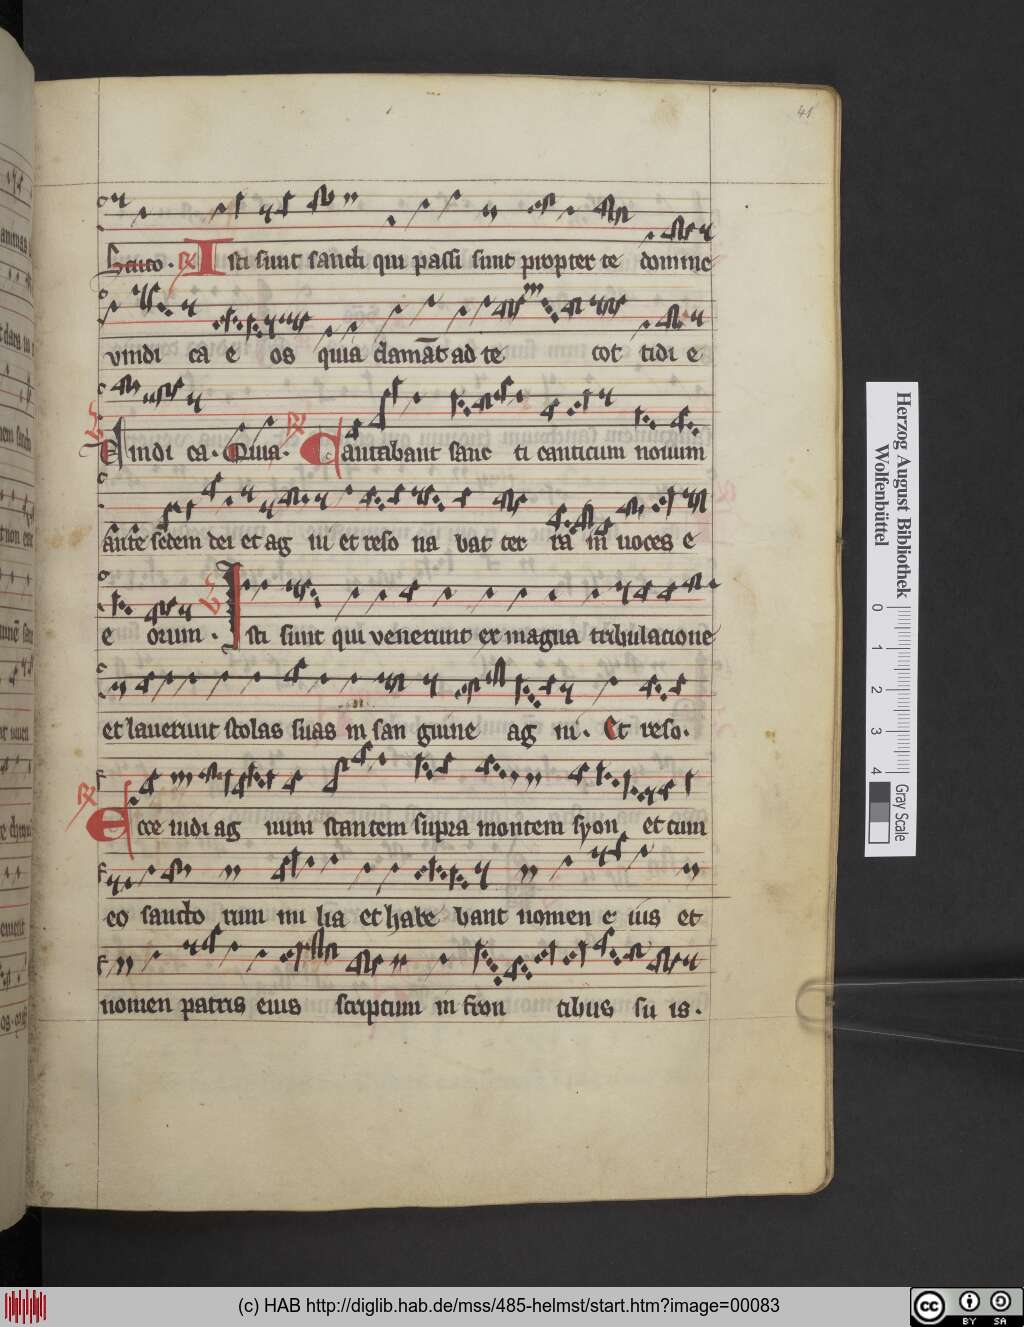 41
R Isti sunt sancti qui passi sunt propter te domine
vindi ca e os quia clamāt ad te tot tidi e
V Vindi ca. Quia. R Cantabant sanc ti canticum nouum
ante sedem dei et ag ni et reso na bant ter ra in uoces e
e orum. V Isti sunt qui venerunt ex magna tribulacione
et lauerunt stolas suas in san guine ag ni. Et reso.
R Ecce uidi ag num stantem supra montem syon et cum
eo sancto rum mi lia et habe bant nomen e ius et
nomen patris eius scriptum in fron tibus su is.
Herzog August Bibliothek
Wolfenbüttel
0 1 2 3 4
Gray Scale
(c) HAB http://diglib.hab.de/mss/485-helmst/start.htm?image=00083
cc BY SA